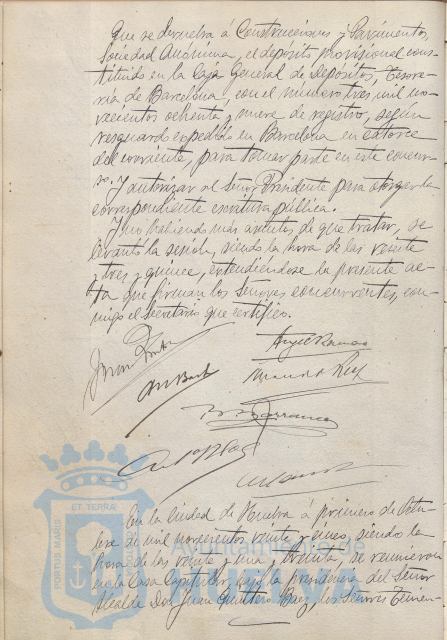 Que se devuelva á Construcciones y Pavimentos
Sociedad Anónima, el depósito provisional cons-
tituido en la Caja General de Depósitos, Tesore-
ría de Barcelona, con el numero tres mil no-
vecientos ochenta y nueve de registro, según
resguardo expedido en Barcelona en catorce
del corriente, para tomar parte en este concur-
so. Y autorizar al Señor Presidente para otorgar la
correspondiente escritura pública.
Y no habiendo más asuntos de que tratar, se
levantó la sesión, siendo la hora de las veinte
y tres y quince, extendiéndose la presente ac-
ta que firman los Señores concurrentes, con-
migo el Secretario que certifico.
B. Barranco
En la Ciudad de Huelva á primero de Octu-
bre de mil novecientos veinte y cinco, siendo la
hora de las veinte y una y treinta, se reunieron
en la Casa Capitular, bajo la presidencia del Señor
Alcalde Don Juan Quintero Baez, los Señores Tenien-
PORTUS MARIS
ET TERRAE
CUSTODIA
Ayuntamiento de
HUELVA